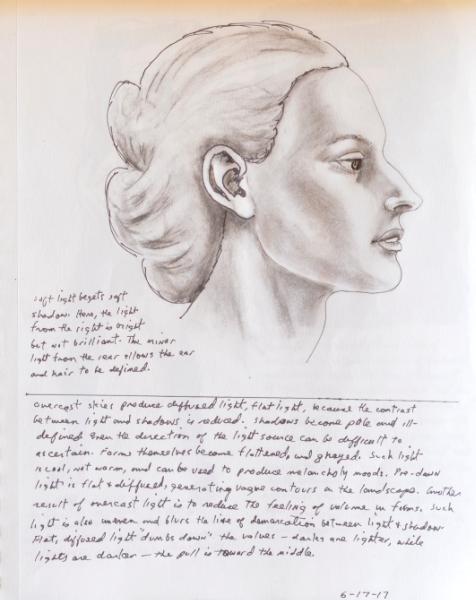 soft light begets soft
shadow. Here, the light
from the right is bright
but not brilliant. The minor
light from the rear allows the ear
and hair to be defined.
overcast skies produce diffused light, flat light, because the contrast
between light and shadows is reduced. Shadows become pale and ill-
defined. Even the direction of the light source can be difficult to
ascertain. Forms themselves become flattened, and grayed. Such light
is cool, not warm, and can be used to produce melancholy moods. Pre-dawn
light is flat & diffused, generating vague contours in the landscape. Another
result of overcast light is to reduce the feeling of volume in forms. Such
light is also uneven and blurs the line of demarcation between light & shadow
Flat, diffused light dumbs down the values – darks are lighter, while
lights are darker – the pull is toward the middle.
6-17-17